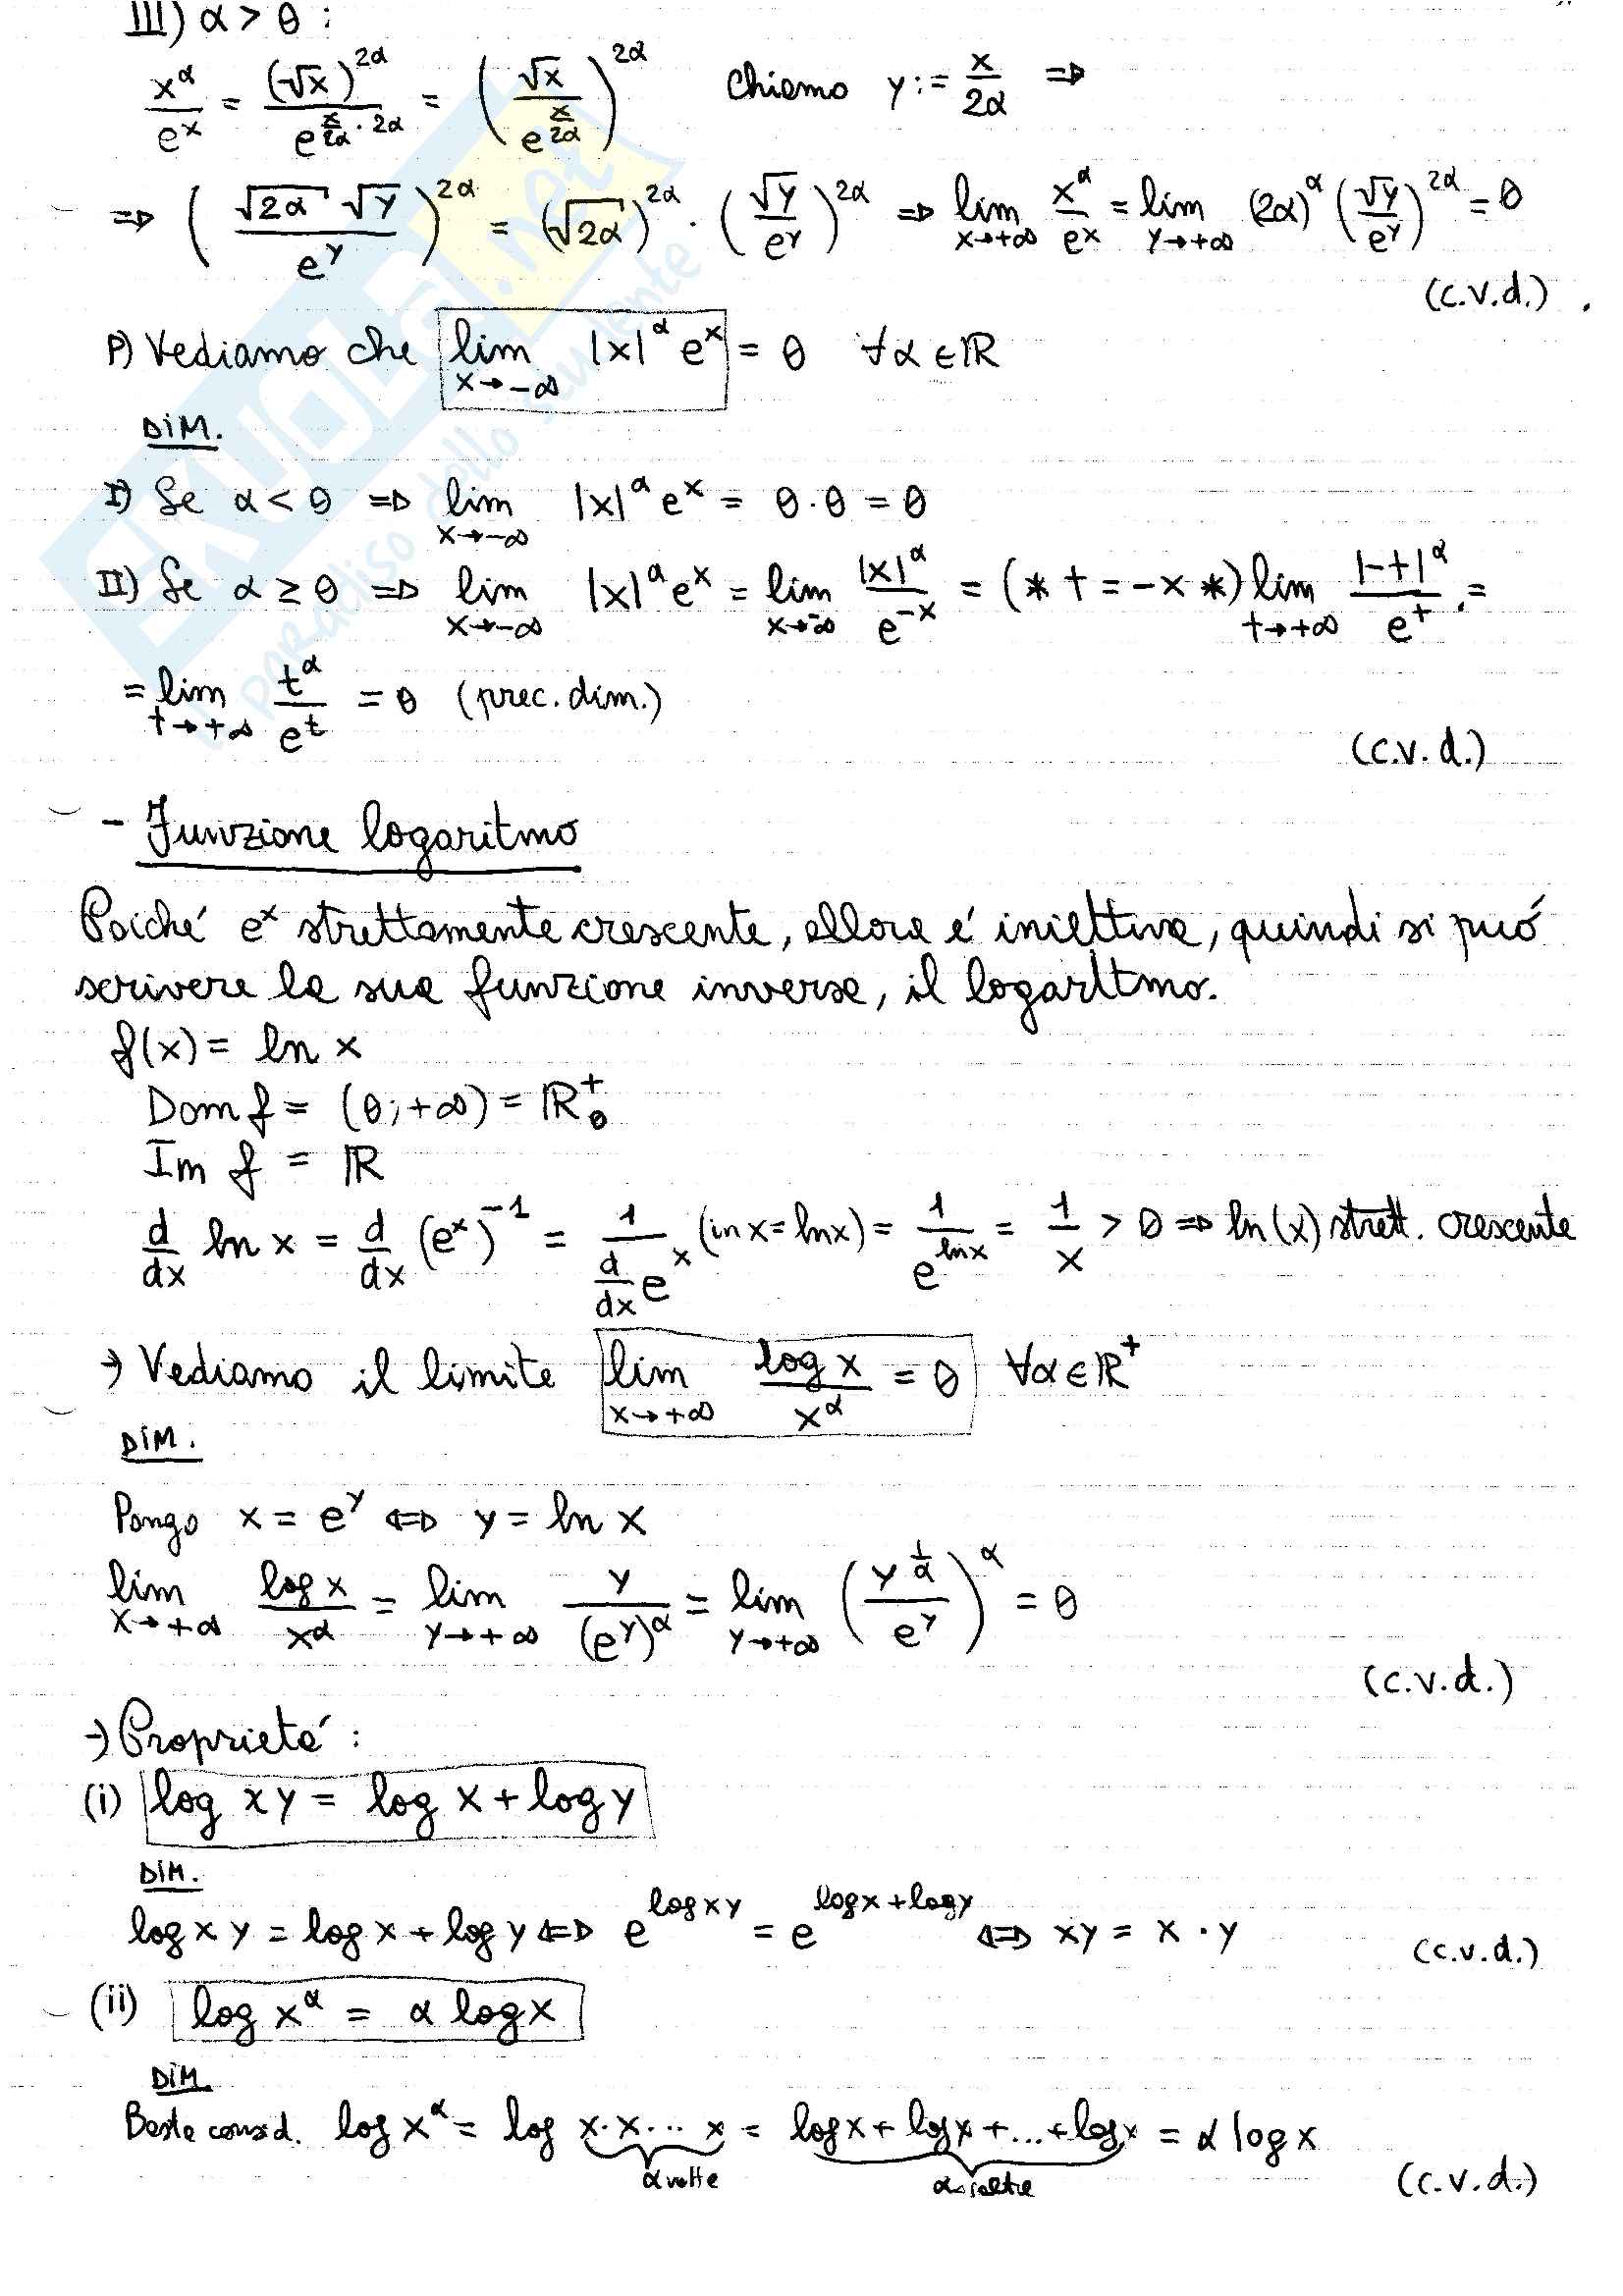 III) α > 0 :
x^α / e^x = (√x)^{2α} / e^{x/2α · 2α} = (√x / e^{x/2α})^{2α} Chiamo y := x/2α ⇒
⇒ (√2α √y / e^y)^{2α} = (√2α)^{2α} · (√y / e^y)^{2α} ⇒ lim_{x→+∞} x^α / e^x = lim_{y→+∞} (2α)^α (√y / e^y)^{2α} = 0
(c.v.d.) .
P) Vediamo che lim_{x→-∞} |x|^α e^x = 0 ∀α∈ℝ
DIM.
I) Se α < 0 ⇒ lim_{x→-∞} |x|^α e^x = 0·0 = 0
II) Se α ≥ 0 ⇒ lim_{x→-∞} |x|^α e^x = lim_{x→-∞} |x|^α / e^{-x} = (* t = -x *) lim_{t→+∞} |-t|^α / e^t =
= lim_{t→+∞} t^α / e^t = 0 (prec. dim.)
(c.v.d.)
- Funzione logaritmo
Poiché e^x strettamente crescente, allora é iniettiva, quindi si puó
scrivere la sua funzione inversa, il logaritmo.
f(x) = ln x
Dom f = (0; +∞) = ℝ^+_0
Im f = ℝ
d/dx ln x = d/dx (e^x)^{-1} = 1 / (d/dx e^x) (in x = ln x) = 1 / e^{ln x} = 1/x > 0 ⇒ ln(x) strett. crescente
→ Vediamo il limite lim_{x→+∞} log x / x^α = 0 ∀α∈ℝ^+
DIM.
Pongo x = e^y ⇔ y = ln x
lim_{x→+∞} log x / x^α = lim_{y→+∞} y / (e^y)^α = lim_{y→+∞} (y^{1/α} / e^y)^α = 0
(c.v.d.)
→ Proprietá :
(i) log xy = log x + log y
DIM.
log xy = log x + log y ⇔ e^{log xy} = e^{log x + log y} ⇔ xy = x · y (c.v.d.)
(ii) log x^α = α log x
DIM.
Basta consid. log x^α = log x·x·…x = log x + log x + … + log x = α log x
α volte α volte (c.v.d.)